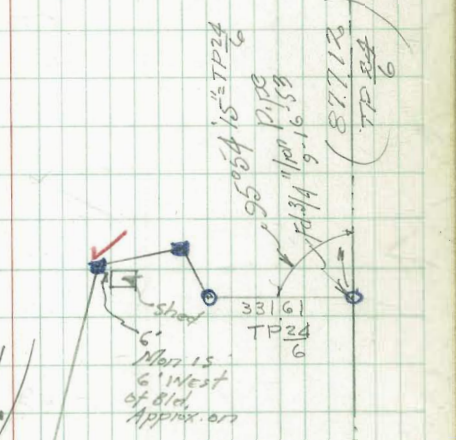 95°54'15"=TP 24/6
Fd. 3/4" Iron Pipe
9-16-53
(877.12)
TP 24/6
33161
TP 24/6
shed
6'
Mon is
6' West
of Bld.
Approx. on